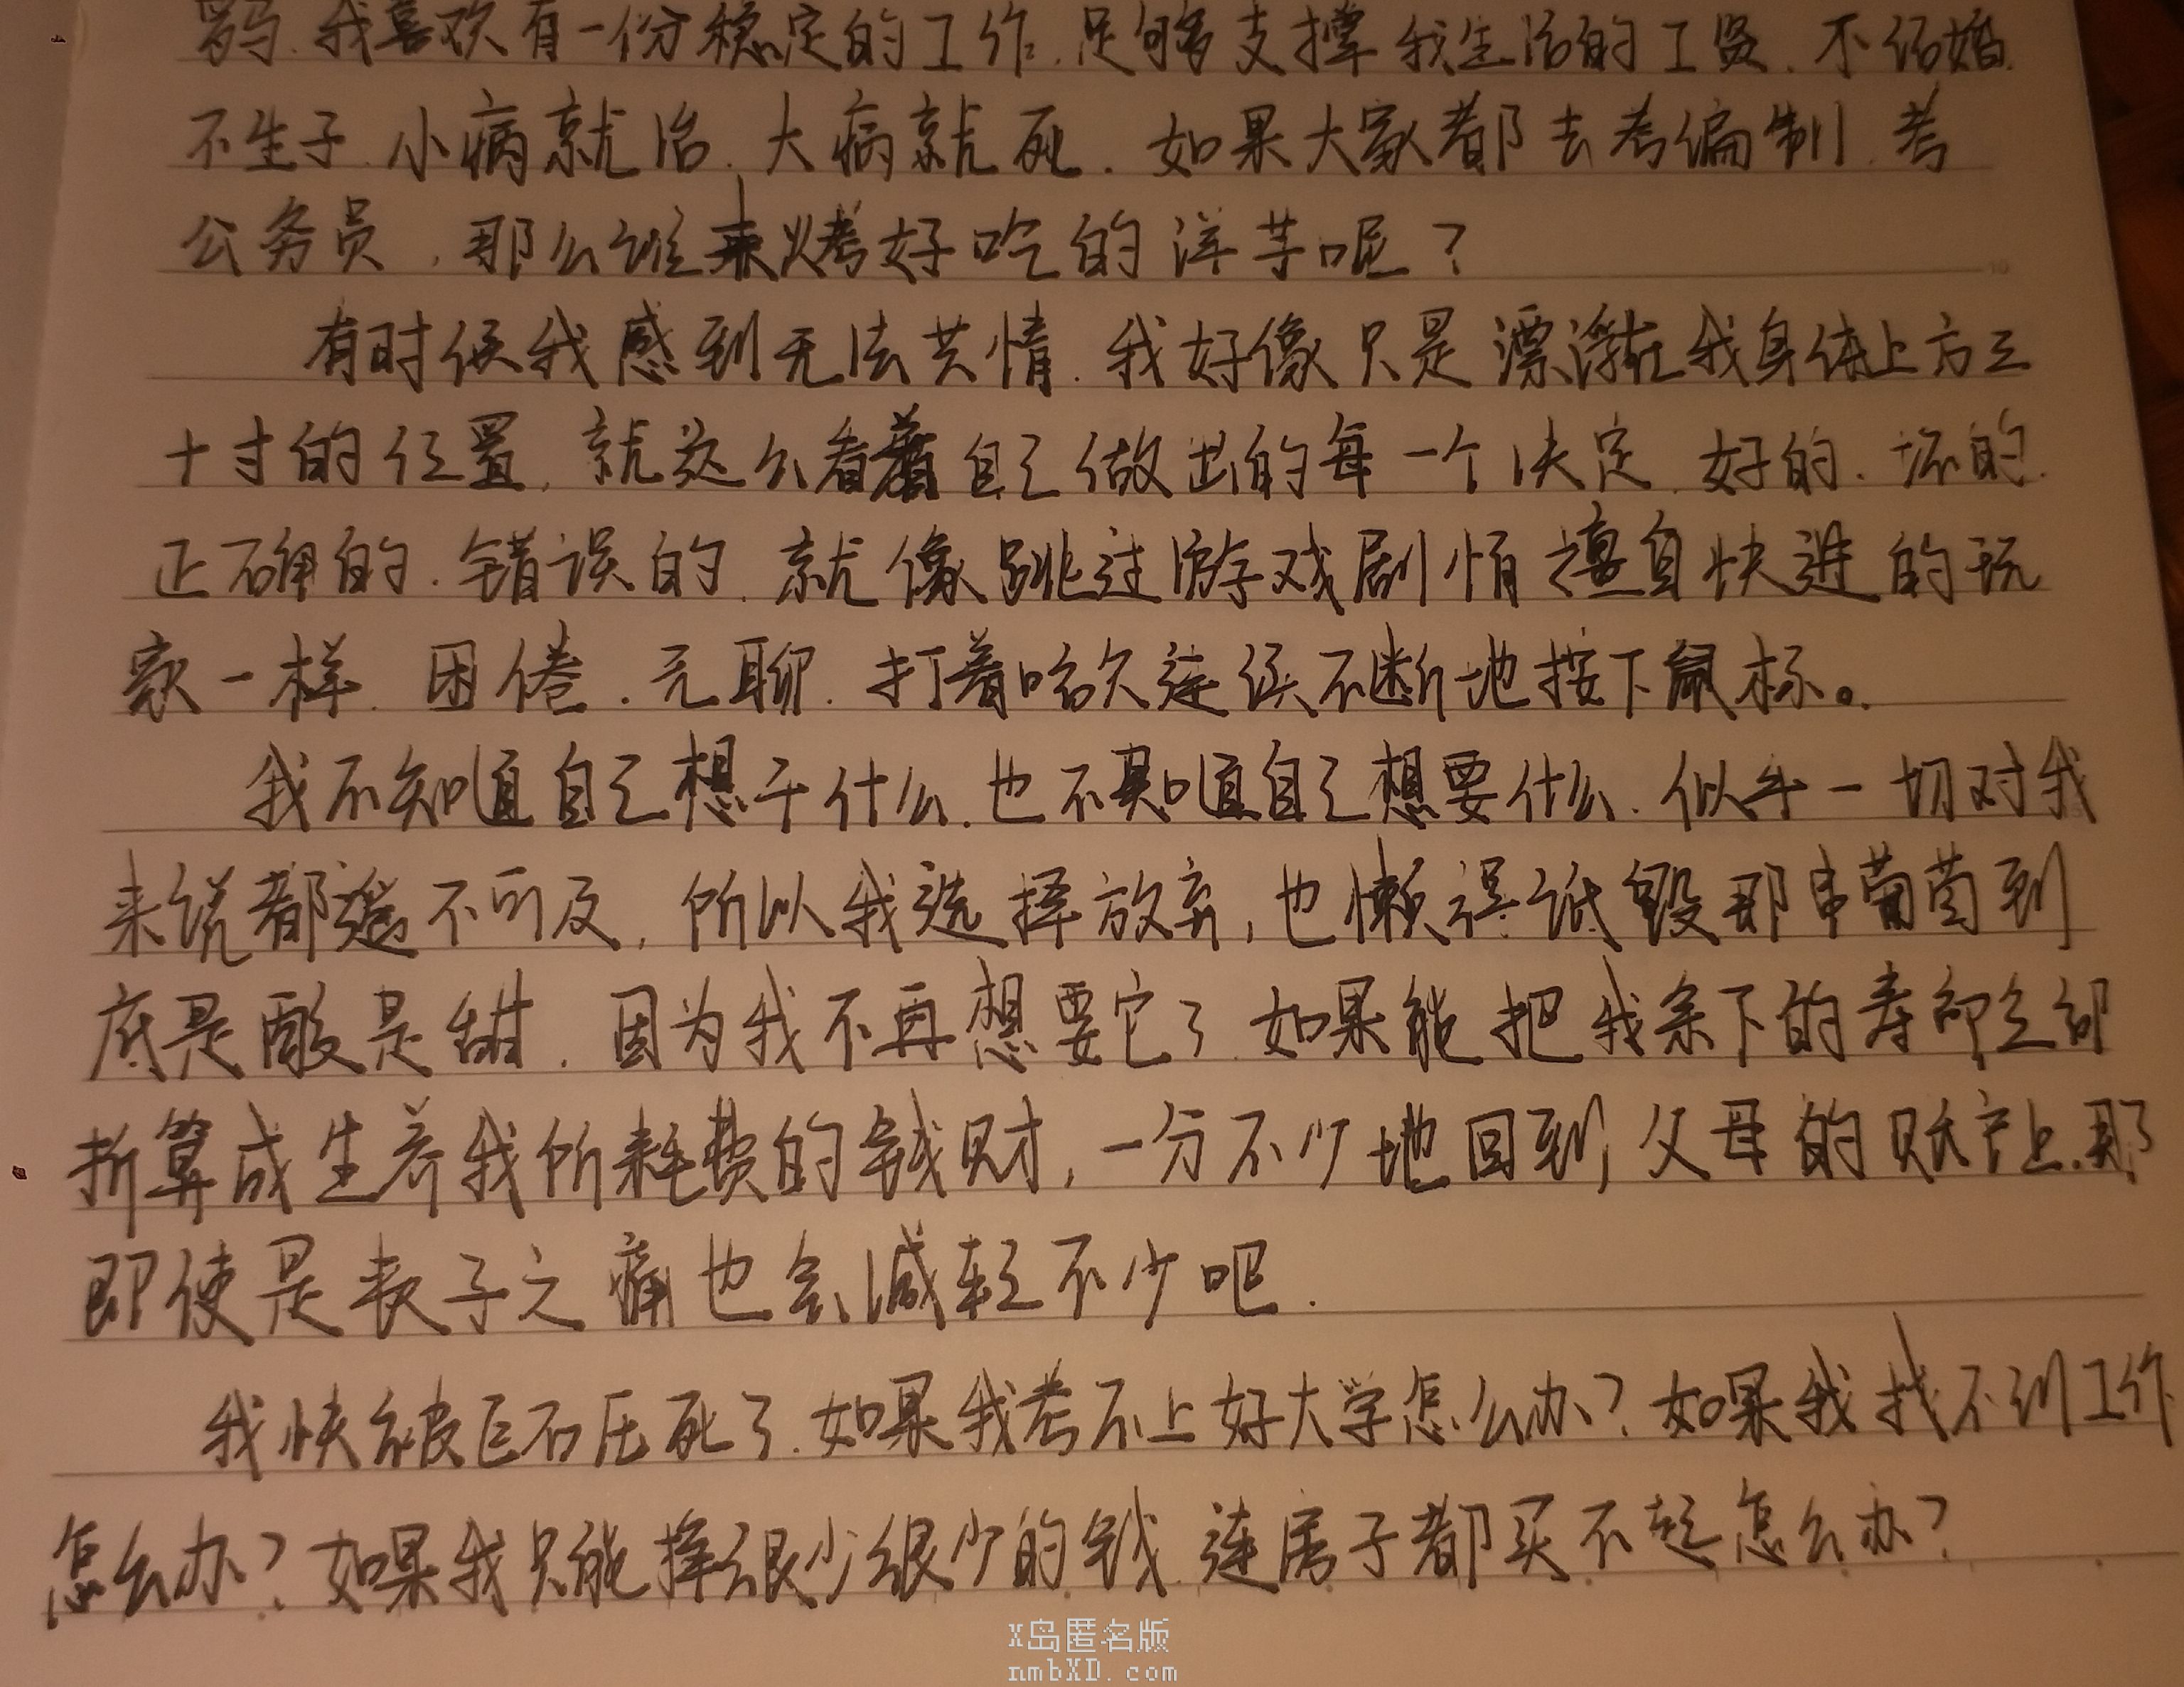 我喜欢有一份稳定的工作.足够支撑我生活的工资.不结婚.
不生子.小病就治.大病就死.如果大家都去考编制.考
公务员,那么谁来烤好吃的洋芋呢?
有时候我感到无法共情.我好像只是漂浮在我身体上方三
十寸的位置,就这么看着自己做出的每一个决定.好的.坏的.
正确的.错误的.就像跳过游戏剧情擅自快进的玩
家一样.困倦.无聊.打着哈欠连续不断地按下鼠标。
我不知道自己想干什么.也不知道自己想要什么.似乎一切对我
来说都遥不可及,所以我选择放弃,也懒得诋毁那串葡萄到
底是酸是甜.因为我不再想要它了.如果能把我余下的寿命全部
折算成生养我所耗费的钱财,一分不少地回到父母的账户上.那
即使是丧子之痛也会减轻不少吧.
我快被巨石压死了.如果我考不上好大学怎么办?如果我找不到工作
怎么办?如果我只能挣很少很少的钱.连房子都买不起怎么办?
X岛匿名版
nmbXD.com